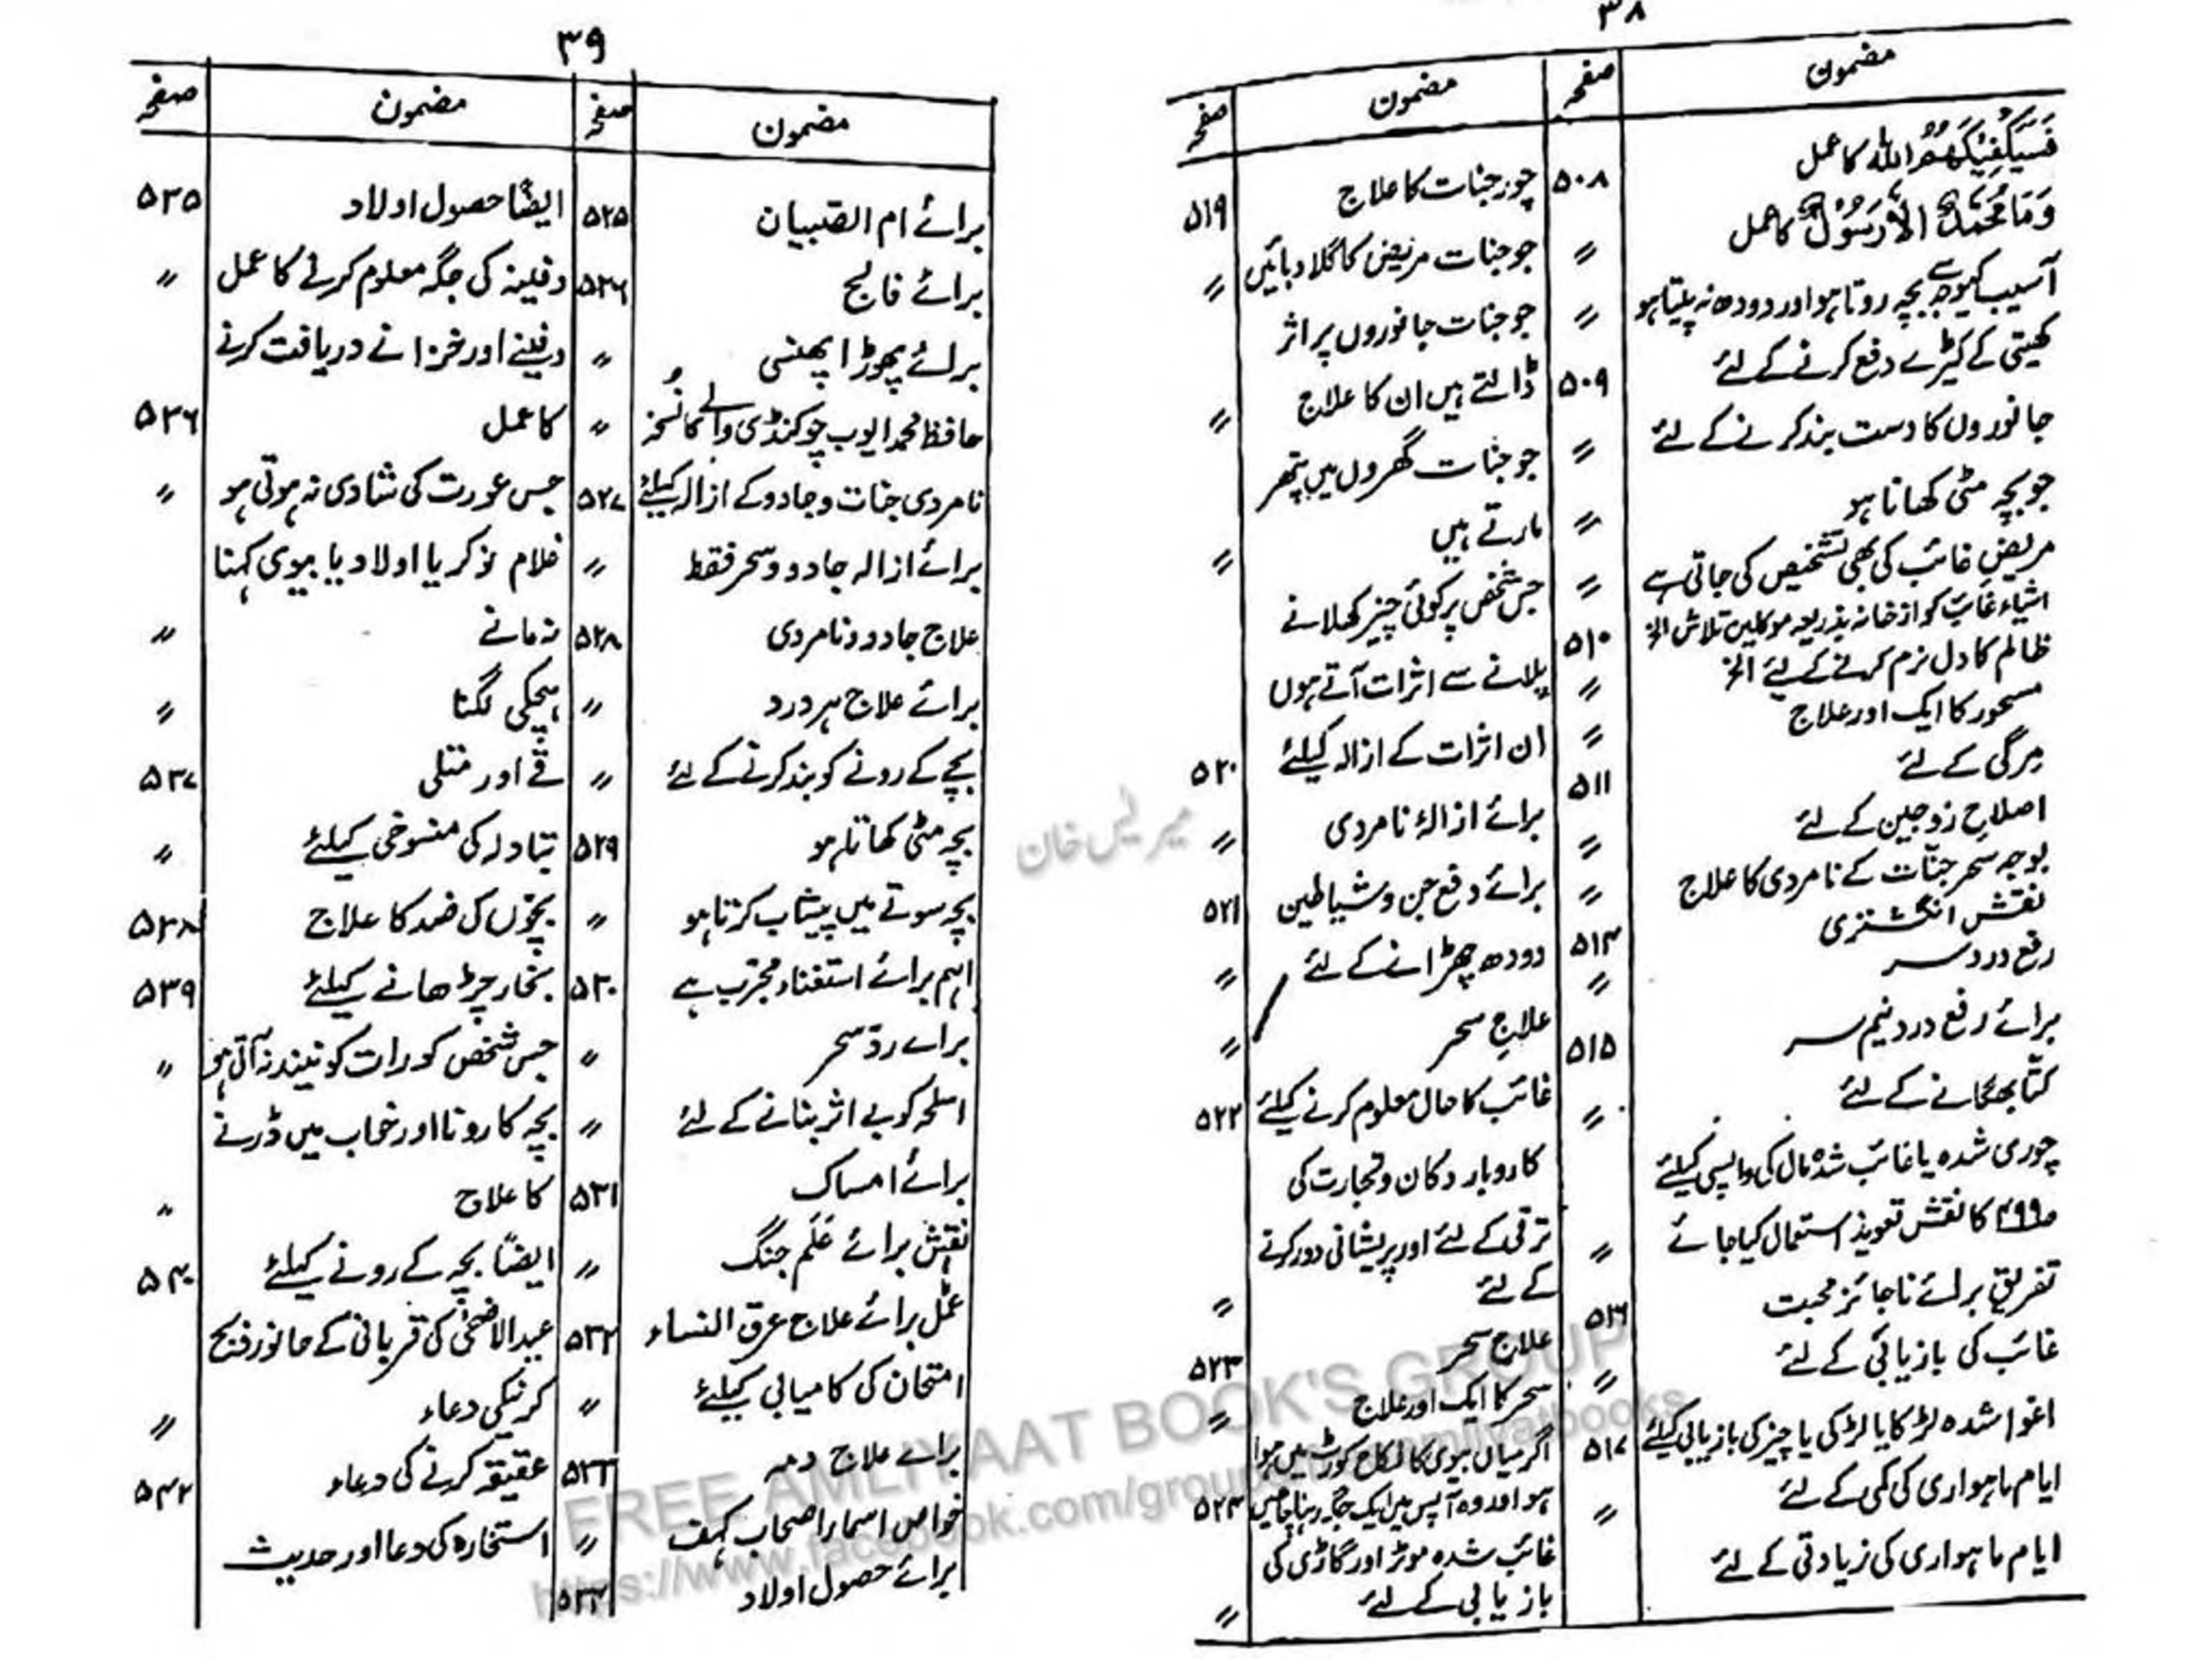 ۳۸
مضمون
صفحہ
مضمون
صفحہ
فَسَيَكْفِيكَهُمُ اللّٰهُ کا عمل
۵۰۸
وَمَا مُحَمَّدٌ اِلَّا رَسُوْلٌ کا عمل
〃
آسیب کیوجہ سے بچہ روتا ہو اور دودھ نہ پیتا ہو
〃
کھیتی کے کیڑے دفع کرنے کے لئے
۵۰۹
جانوروں کا دست بند کرنے کے لئے
〃
جو بچہ مٹی کھاتا ہو
〃
مریض غائب کی بھی تشخیص کی جاتی ہے
〃
اشیاء غائب کو از خانہ بذریعہ موکلین تلاش الخ
۵۱۰
ظالم کا دل نرم کرنے کے لئے الخ
〃
مسحور کا ایک اور علاج
〃
مرگی کے لئے
۵۱۱
اصلاح زوجین کے لئے
〃
بوجہ سحر جنّات کے نامردی کا علاج
〃
نقش انگشتری
۵۱۳
رفع درد سر
〃
برائے رفع درد نیم سر
۵۱۵
کتّا بھگانے کے لئے
〃
چوری شدہ یا غائب شدہ مال کی واپسی کیلئے
کا نقش تعویذ استعمال کیا جائے
〃
تفریق برائے ناجائز محبت
۵۱۶
غائب کی بازیابی کے لئے
〃
اغوا شدہ لڑکا یا لڑکی یا چیز کی بازیابی کیلئے
۵۱۷
ایام ماہواری کی کمی کے لئے
〃
ایام ماہواری کی زیادتی کے لئے
چور جنات کا علاج
۵۱۹
جو جنات مریض کا گلا دبائیں
〃
جو جنات جانوروں پر اثر
ڈالتے ہیں ان کا علاج
〃
جو جنات گھروں میں پتھر
مارتے ہیں
〃
جس شخص پر کوئی چیز کھلانے
پلانے سے اثرات آتے ہوں
ان اثرات کے ازالہ کیلئے
۵۲۰
برائے ازالۂ نامردی
〃
برائے دفع جن و شیاطین
۵۲۱
دودھ چھڑانے کے لئے
〃
علاج سحر
〃
غائب کا حال معلوم کرنے کیلئے
۵۲۲
کاروبار دکان و تجارت کی
ترقی کے لئے اور پریشانی دور کرنے
کے لئے
〃
علاج سحر
۵۲۳
سحر کا ایک اور علاج
〃
اگر میاں بیوی کا نکاح کورٹ میں ہوا
ہو اور وہ آپس میں ایک جگہ رہنا چاہیں
۵۲۴
غائب شدہ موٹر اور گاڑی کی
بازیابی کے لئے
〃
۳۹
مضمون
صفحہ
مضمون
صفحہ
برائے ام الصبیان
۵۲۵
برائے فالج
۵۲۶
برائے پھوڑا پھنسی
〃
حافظ محمد ایوب چوکنڈی والے کا نسخہ
〃
نامردی جنات و جادو کے ازالہ کیلئے
۵۲۷
برائے ازالہ جادو و سحر فقط
〃
علاج جادو و نامردی
۵۲۸
برائے علاج ہر درد
〃
بچے کے رونے کو بند کرنے کے لئے
〃
بچہ مٹی کھاتا ہو
۵۲۹
بچہ سوتے میں پیشاب کرتا ہو
〃
اہم برائے استغناء مجرّب ہے
۵۳۰
برائے ردّ سحر
〃
اسلحہ کو بے اثر بنانے کے لئے
〃
برائے امساک
۵۳۱
نقش برائے عَلَم جنگ
〃
عمل برائے علاج عرق النساء
۵۳۲
امتحان کی کامیابی کیلئے
〃
برائے علاج دمہ
۵۳۳
خواص اسماء اصحاب کہف
〃
برائے حصول اولاد
۵۳۴
ایضًا حصول اولاد
۵۳۵
دفینہ کی جگہ معلوم کرنے کا عمل
〃
دفینے اور خزانے دریافت کرنے
کا عمل
۵۳۶
جس عورت کی شادی نہ ہوتی ہو
〃
غلام نوکر یا اولاد یا بیوی کہنا
نہ مانے
〃
ہچکی لگنا
〃
قے اور متلی
۵۳۷
تبادلہ کی منسوخی کیلئے
〃
بچّوں کی ضد کا علاج
۵۳۸
بخار چڑھانے کیلئے
۵۳۹
جس شخص کو رات کو نیند نہ آتی ہو
〃
بچہ کا رونا اور خواب میں ڈرنے
کا علاج
〃
ایضًا بچہ کے رونے کیلئے
۵۴۰
عید الاضحیٰ کی قربانی کے جانور ذبح
کرنیکی دعاء
〃
عقیقہ کرنے کی دعاء
۵۴۲
استخارہ کی دعا اور حدیث
FREE AMLIYAAT BOOK'S GROUP